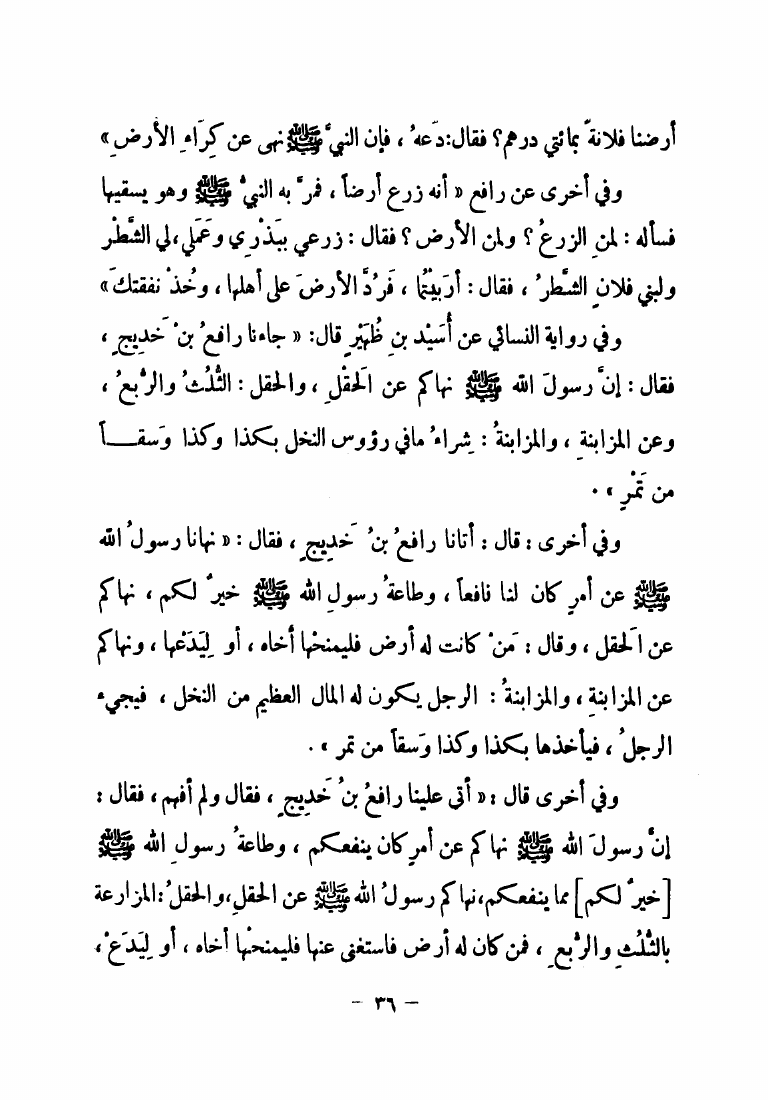 أرضنا فلانةٌ بمائتي درهم؟ فقال:دَعهُ ، فإن النبيَّ ﷺ نهى عن كِرَاءِ الأرضِ»
وفي أخرى عن رافع « أنه زرع أرضاً ، فمرَّ به النبيُّ ﷺ وهو يسقيها
فسأله : لمنِ الزرعُ ؟ ولمن الأرض ؟ فقال : زرعي بِبَذْرِي وعَمَلي،لي الشَّطْر
ولبني فلانٍ الشَّطرُ ، فقال : أربَيْتُمَا ، فَرُدَّ الأرضَ على أهلها ، وخُذْ نفقتكَ»
وفي رواية النسائي عن أُسَيْد بنِ ظُهَيْرٍ قال: « جاءنا رافعُ بنْ خَديجٍ ،
فقال : إنَّ رسولَ الله ﷺ نهاكم عن الحَقْلِ ، والحقل : الثُّلُثُ والرُّبعُ ،
وعن المزابنةِ ، والمزابنةُ : شِراءُ مافي رؤوس النخل بكذا وكذا وَسقــــاً
من تَمْرٍ » .
وفي أخرى : قال : أتانا رافعُ بنُ خَديجٍ ، فقال : « نهانا رسولُ الله
ﷺ عن أمرٍ كان لنا نافعاً ، وطاعةُ رسولِ الله ﷺ خيرٌ لكم ، نهاكم
عن الحَقل ، وقال : مَنْ كانت له أرض فليمنحْها أخاه ، أو لِيَدَعْها ، ونهاكم
عن المزابنةِ ، والمزابنةُ : الرجل يكون له المال العظيم من النخل ، فيجيء
الرجلُ ، فيأخذها بكذا وكذا وَسقاً من تمر » .
وفي أخرى قال : « أتى علينا رافعُ بنُ خَديجٍ ، فقال ولم أفهم ، فقال :
إنَّ رسولَ الله ﷺ نهاكم عن أمرٍ كان ينفعكم ، وطاعةُ رسولِ الله ﷺ
[خيرٌ لكم] مما ينفعكم،نهاكم رسولُ الله ﷺ عن الحقلِ،والحقلُ:المزارعة
بالثُّلُثِ والرُّبعِ ، فمن كان له أرض فاستغنى عنها فليمنحْها أخاه ، أو لِيَدَعْ ،
– ٣٦ –